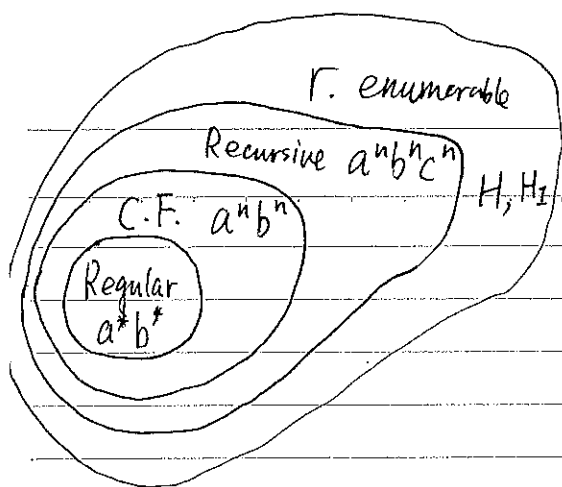 r. enumerable
Recursive aⁿbⁿcⁿ
H, H₁
C.F. aⁿbⁿ
Regular
a*b*